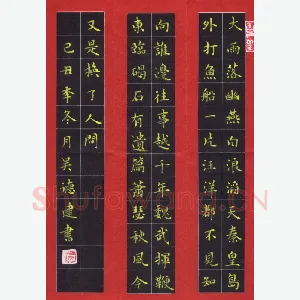 大雨落幽燕白浪滔天秦皇島
外打魚船一片汪洋都不見知
向誰邊往事越千年魏武揮鞭
東臨碣石有遺篇蕭瑟秋風今
又是換了人間
己丑秊冬月吴德建書